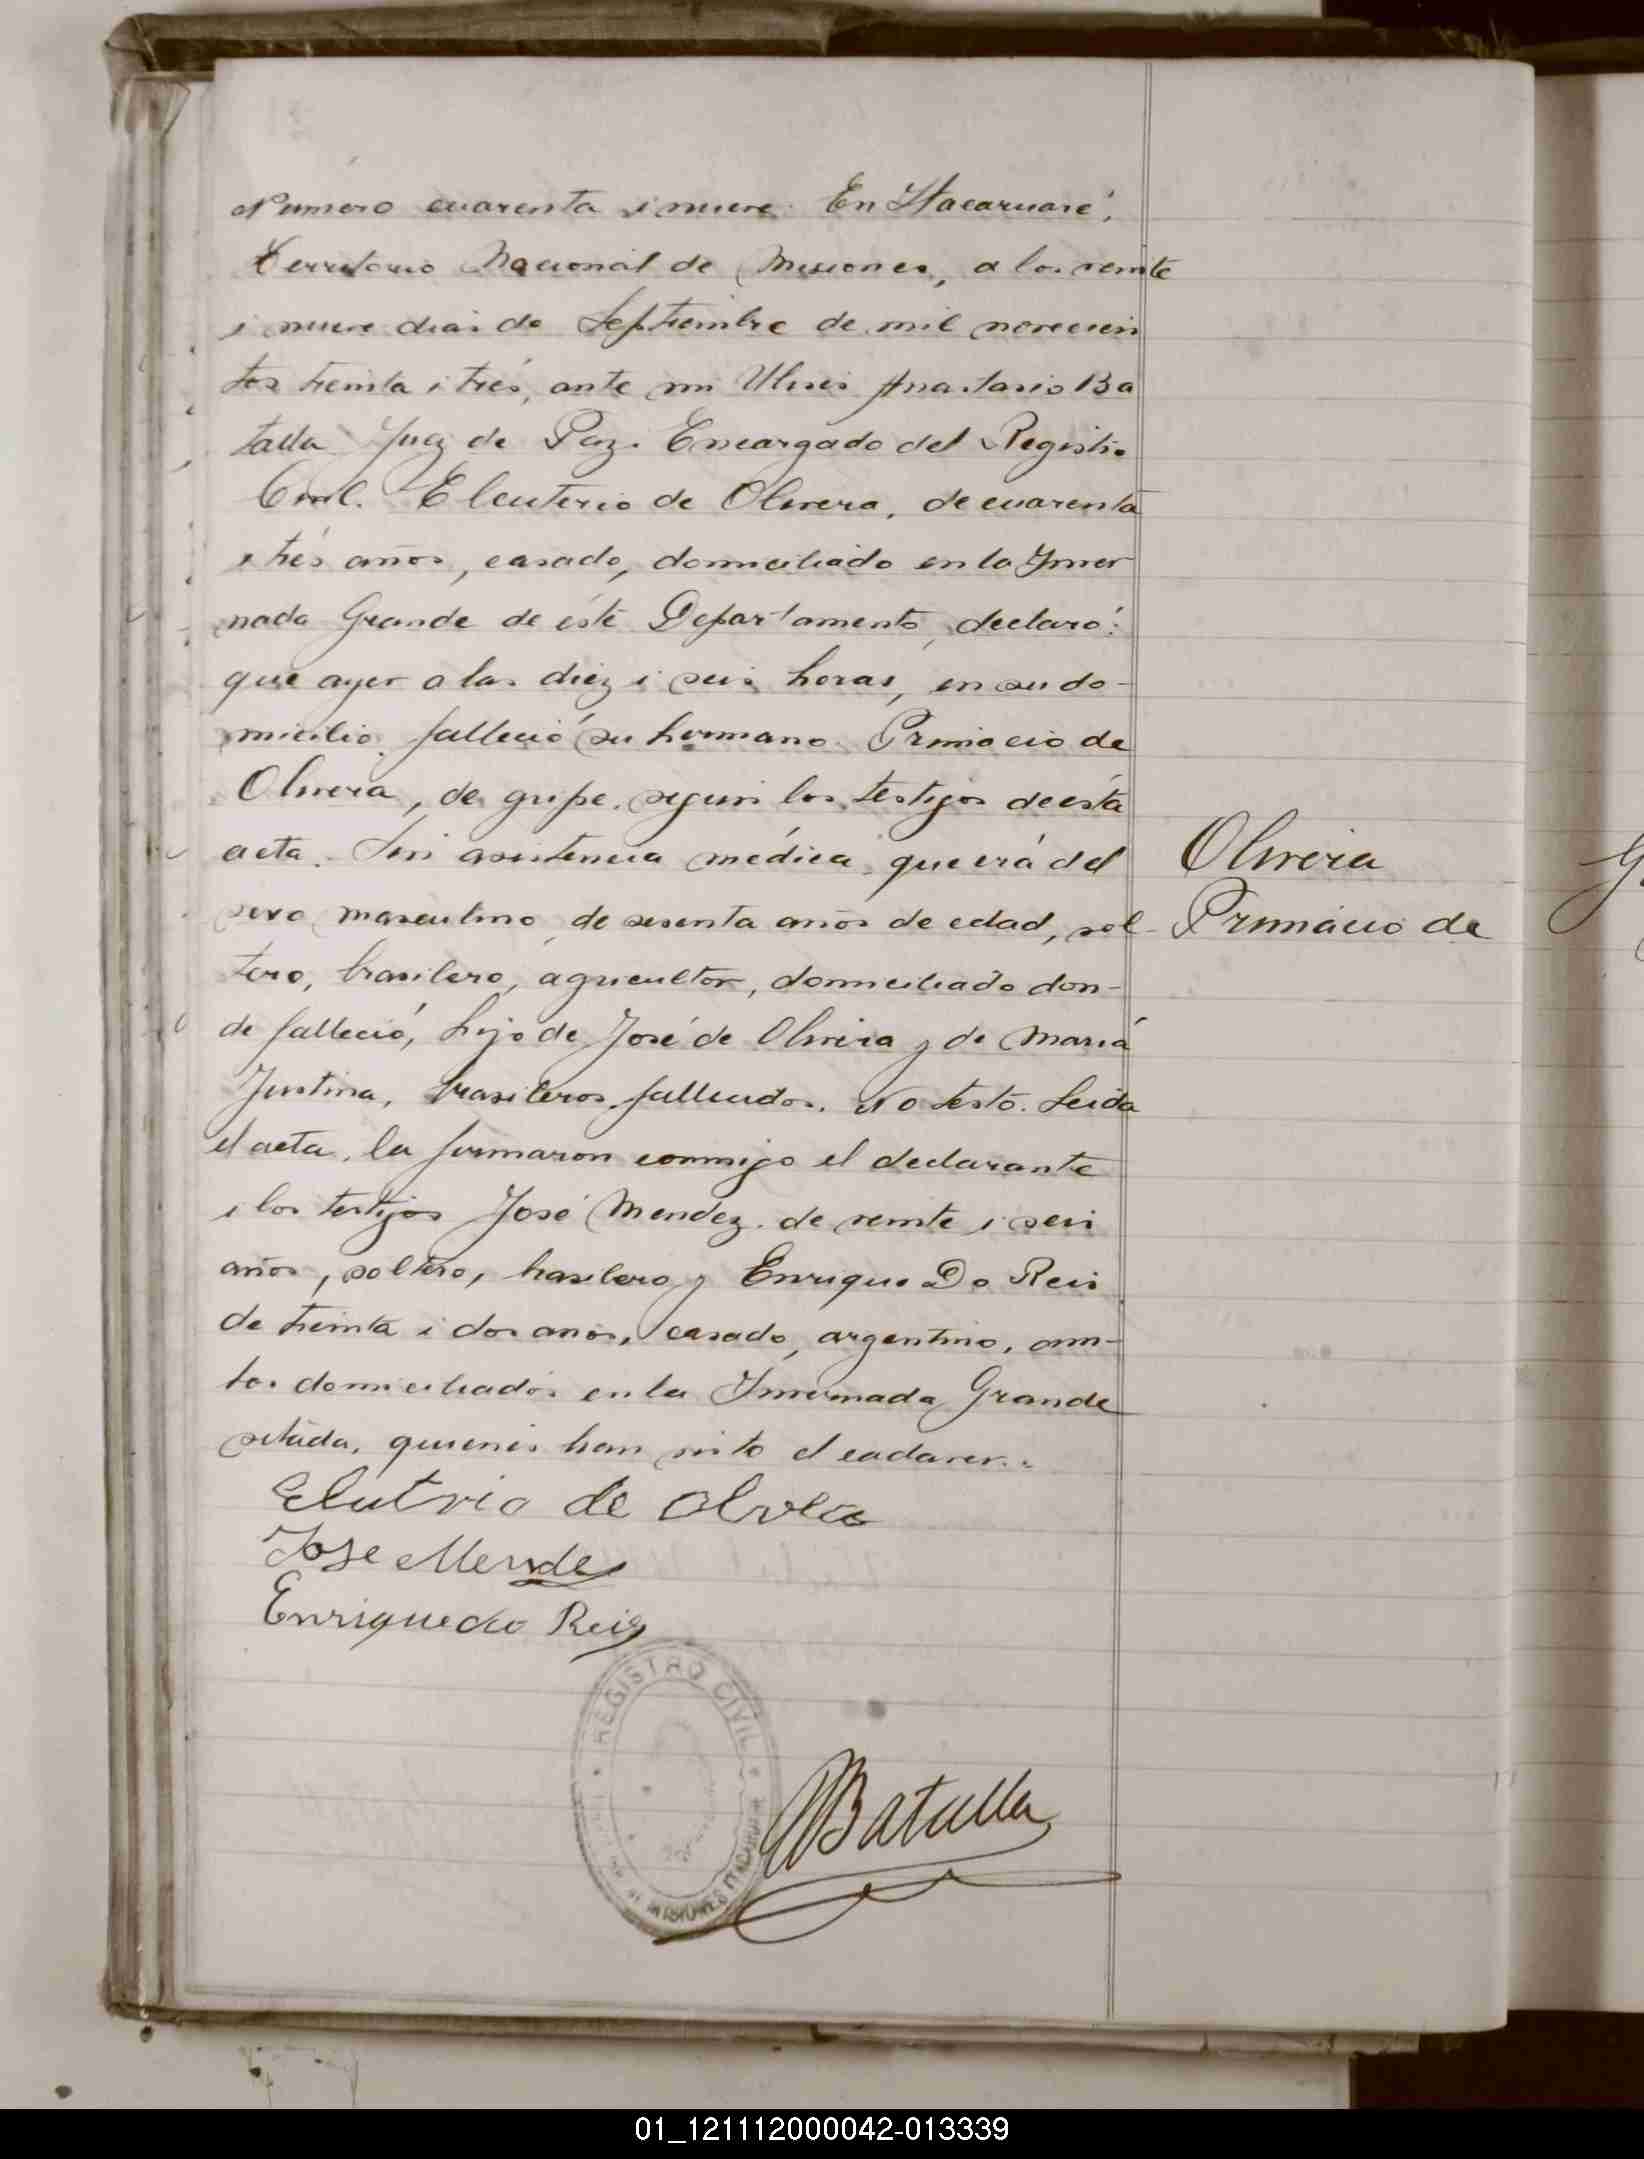 Número cuarenta i nueve. En Itacaruaré,
Territorio Nacional de Misiones, a los veinte
i nueve dias de Septiembre de mil novecien
tos treinta i trés, ante mi Ulises Anastasio Ba
talla Juez de Paz. Encargado del Registro
Civil. Eleuterio de Olivera, de cuarenta
i trés años, casado, domiciliado en la Inver
nada Grande de éste Departamento, declaró:
que ayer a las diez i seis horas, en su do-
micilio, falleció su hermano Primacio de
Olivera, de gripe, segun los testigos de ésta
acta. Sin asistencia médica, que erá del
sexo masculino, de sesenta años de edad, sol-
tero, brasilero, agricultor, domiciliado don-
de falleció, hijo de José de Oliveira y de Mariá
Justina, brasileros, fallecidos. No testó. Leida
el acta, la firmaron conmigo el declarante
i los testigos José Mendez, de veinte i seis
años, soltero, brasilero y Enrique Do Reis
de treinta i dos anos, casado, argentino, am-
bos domiciliados en la Invernada Grande
citada, quienes han visto el cadaver.
Olivera
Primacio de
Elutrio de Olvera
Jose Mendes
Enrique do Reis
REGISTRO CIVIL
MISIONES ITACARUARE
Batalla
01_121112000042-013339